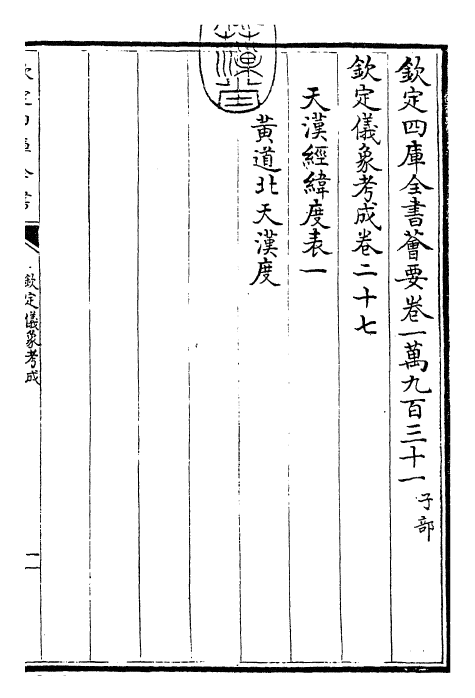 欽定四庫全書薈要卷一萬九百三十一 子部
欽定儀象考成卷二十七
天漢經緯度表一
黃道北天漢度
欽定四庫全書
欽定儀象考成
一